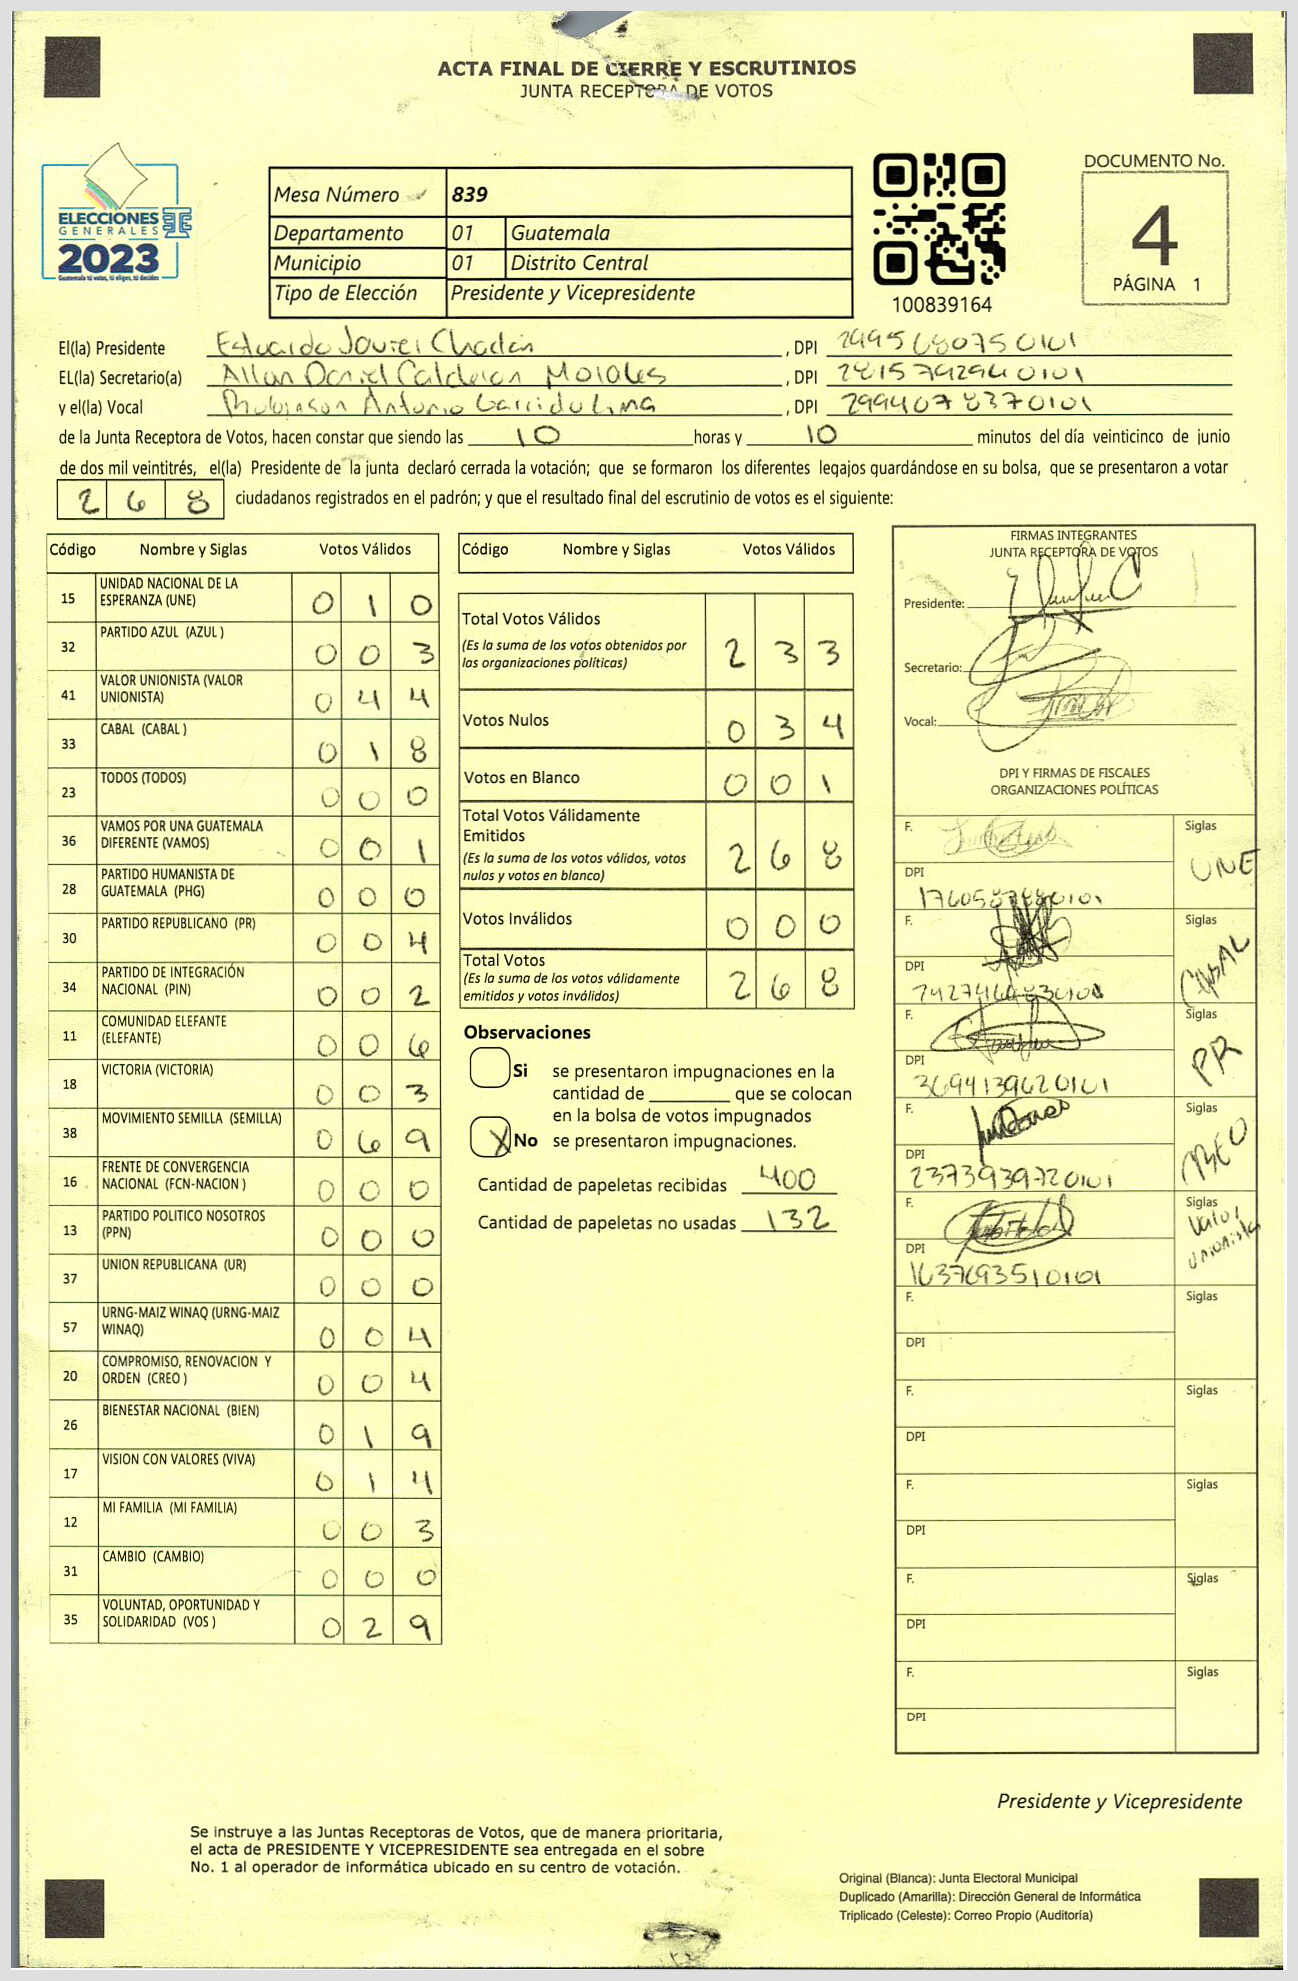 ACTA FINAL DE CIERRE Y ESCRUTINIOS
JUNTA RECEPTORA DE VOTOS
ELECCIONES
GENERALES
2023
Guatemala tú votas, tú eliges, tú decides
Mesa Número 839
Departamento 01 Guatemala
Municipio 01 Distrito Central
Tipo de Elección Presidente y Vicepresidente
100839164
DOCUMENTO No.
4
PÁGINA 1
El(la) Presidente Eduardo Javier , DPI
EL(la) Secretario(a) Allan Daniel Calderon Morales , DPI 2815792940101
y el(la) Vocal Robinson Antonio Garrido Lima , DPI 2994078370101
de la Junta Receptora de Votos, hacen constar que siendo las 10 horas y 10 minutos del día veinticinco de junio
de dos mil veintitrés, el(la) Presidente de la junta declaró cerrada la votación; que se formaron los diferentes legajos guardándose en su bolsa, que se presentaron a votar
268 ciudadanos registrados en el padrón; y que el resultado final del escrutinio de votos es el siguiente:
Código Nombre y Siglas Votos Válidos
15 UNIDAD NACIONAL DE LA
ESPERANZA (UNE) 010
32 PARTIDO AZUL (AZUL ) 003
41 VALOR UNIONISTA (VALOR
UNIONISTA) 044
33 CABAL (CABAL ) 018
23 TODOS (TODOS) 000
36 VAMOS POR UNA GUATEMALA
DIFERENTE (VAMOS) 001
28 PARTIDO HUMANISTA DE
GUATEMALA (PHG) 000
30 PARTIDO REPUBLICANO (PR) 004
34 PARTIDO DE INTEGRACIÓN
NACIONAL (PIN) 002
11 COMUNIDAD ELEFANTE
(ELEFANTE) 006
18 VICTORIA (VICTORIA) 003
38 MOVIMIENTO SEMILLA (SEMILLA) 069
16 FRENTE DE CONVERGENCIA
NACIONAL (FCN-NACION ) 000
13 PARTIDO POLITICO NOSOTROS
(PPN) 000
37 UNION REPUBLICANA (UR) 000
57 URNG-MAIZ WINAQ (URNG-MAIZ
WINAQ) 004
20 COMPROMISO, RENOVACION Y
ORDEN (CREO ) 004
26 BIENESTAR NACIONAL (BIEN) 019
17 VISION CON VALORES (VIVA) 014
12 MI FAMILIA (MI FAMILIA) 003
31 CAMBIO (CAMBIO) 000
35 VOLUNTAD, OPORTUNIDAD Y
SOLIDARIDAD (VOS ) 029
Código Nombre y Siglas Votos Válidos
Total Votos Válidos
(Es la suma de los votos obtenidos por
las organizaciones políticas) 233
Votos Nulos 034
Votos en Blanco 001
Total Votos Válidamente
Emitidos
(Es la suma de los votos válidos, votos
nulos y votos en blanco) 268
Votos Inválidos 000
Total Votos
(Es la suma de los votos válidamente
emitidos y votos inválidos) 268
Observaciones
Si se presentaron impugnaciones en la
cantidad de ________ que se colocan
en la bolsa de votos impugnados
X No se presentaron impugnaciones.
Cantidad de papeletas recibidas 400
Cantidad de papeletas no usadas 132
FIRMAS INTEGRANTES
JUNTA RECEPTORA DE VOTOS
Presidente:
Secretario:
Vocal:
DPI Y FIRMAS DE FISCALES
ORGANIZACIONES POLÍTICAS
F. Siglas
UNE
DPI
F. Siglas
CABAL
DPI
F. Siglas
PR
DPI
3694139620101
F. Siglas
DPI
2373939720101
F. Siglas
Valor
unionista
DPI
1637693510101
F. Siglas
DPI
F. Siglas
DPI
F. Siglas
DPI
F. Siglas
DPI
F. Siglas
DPI
Presidente y Vicepresidente
Se instruye a las Juntas Receptoras de Votos, que de manera prioritaria,
el acta de PRESIDENTE Y VICEPRESIDENTE sea entregada en el sobre
No. 1 al operador de informática ubicado en su centro de votación.
Original (Blanca): Junta Electoral Municipal
Duplicado (Amarilla): Dirección General de Informática
Triplicado (Celeste): Correo Propio (Auditoría)